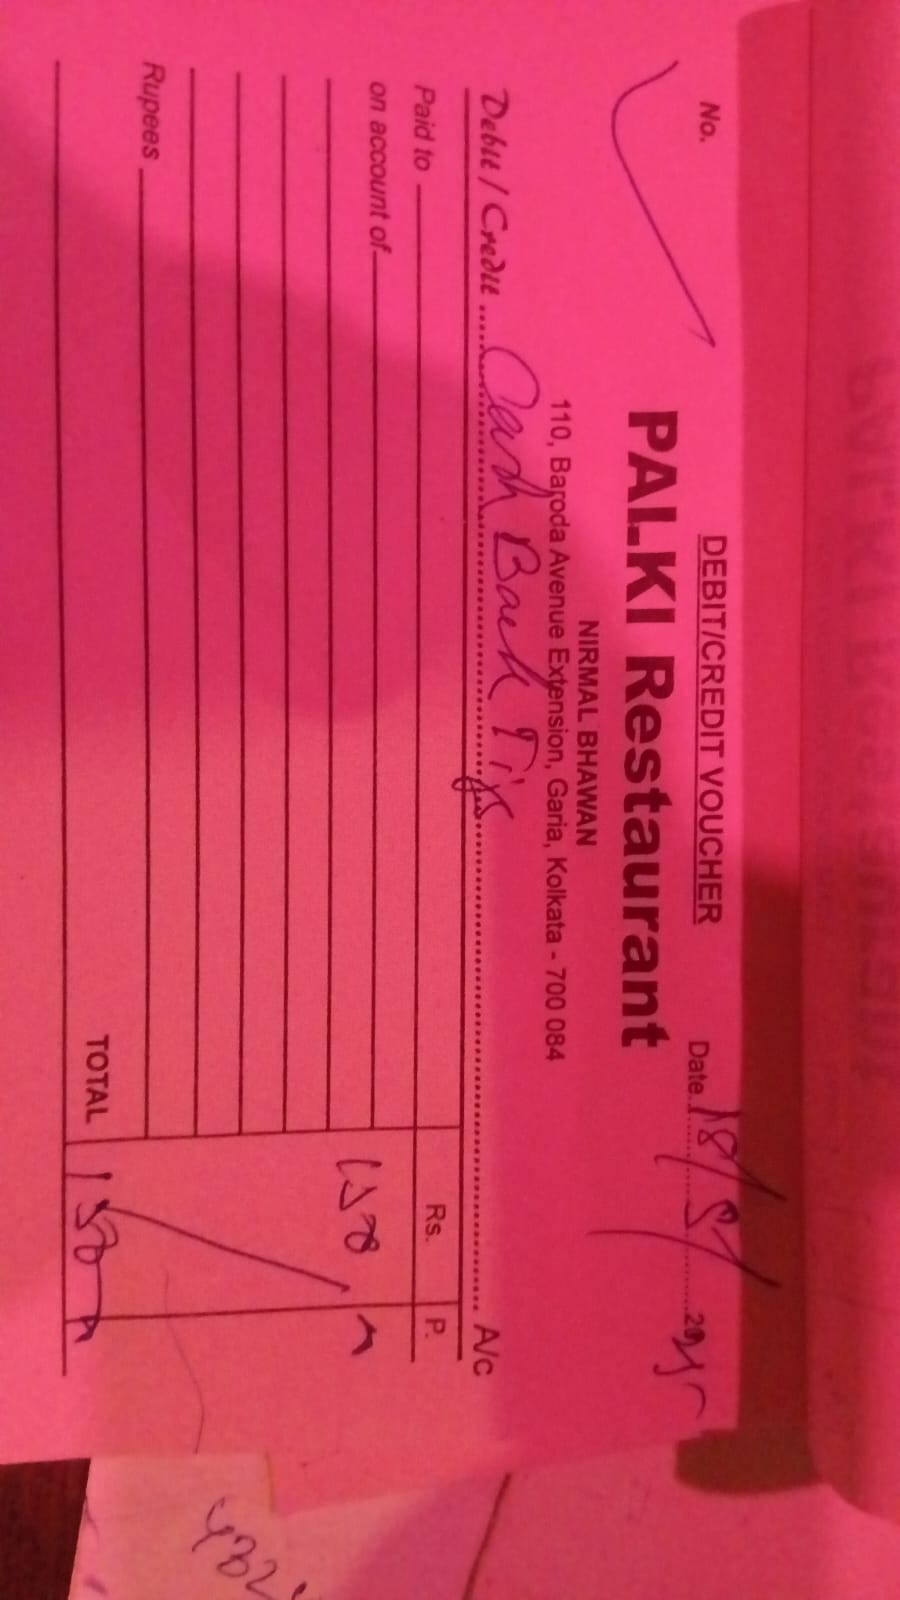 DEBIT/CREDIT VOUCHER
No.
Date 18/5/
PALKI Restaurant
NIRMAL BHAWAN
110, Baroda Avenue Extension, Garia, Kolkata - 700 084
Debit / Credit Cash Back Tips A/c
Rs. P.
Paid to
on account of
Rupees
TOTAL